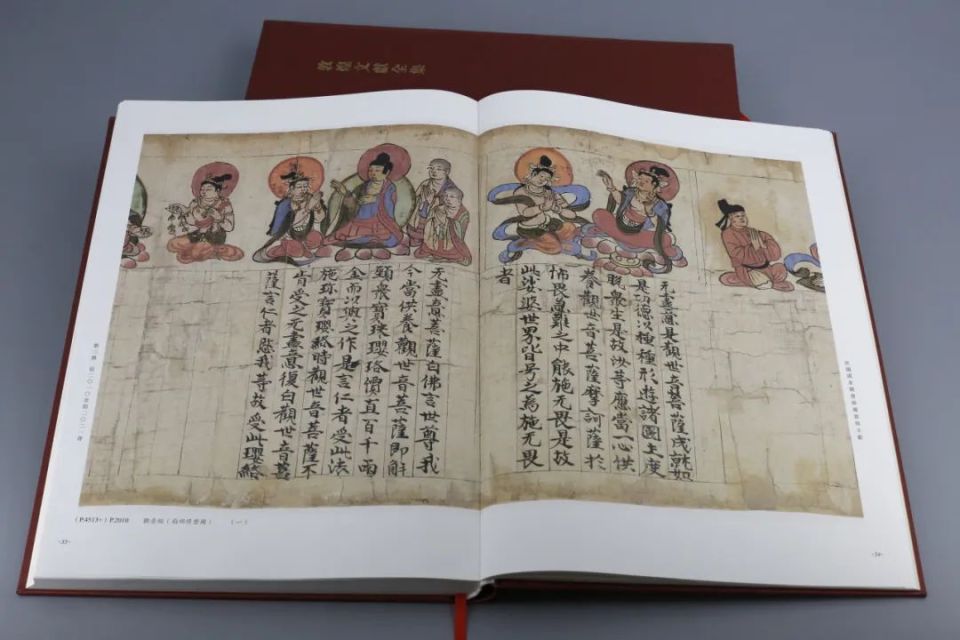 敦煌文獻全集
无盡意是觀世音菩薩成就如
是功德以種種形遊諸國土度
脱衆生是故汝等應當一心供
養觀世音菩薩摩訶薩於
怖畏急難之中能施无畏是故
此娑婆世界皆号之為施无畏
者
无盡意菩薩白佛言世尊我
今當供養觀世音菩薩即解
頸衆寶珠瓔珞價直百千兩
金而以與之作是言仁者受此法
施珎寶瓔珞時觀世音菩薩不
肯受之无盡意復白觀世音菩
薩言仁者愍我等故受此瓔珞
(P.4513+) P.2010 觀音經 (一)
·33·
·34·